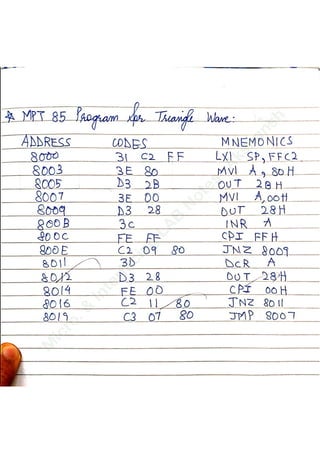 * MPT 85 Program for Triangle Wave:
ADDRESS CODES MNEMONICS
8000 31 C2 FF LXI SP, FFC2
8003 3E 80 MVI A, 80H
8005 D3 2B OUT 2BH
8007 3E 00 MVI A, 00H
8009 D3 28 OUT 28H
800B 3C INR A
800C FE FF CPI FFH
800E C2 09 80 JNZ 8009
8011 3D DCR A
8012 D3 28 OUT 28H
8014 FE 00 CPI 00H
8016 C2 11 80 JNZ 8011
8019 C3 07 80 JMP 8007